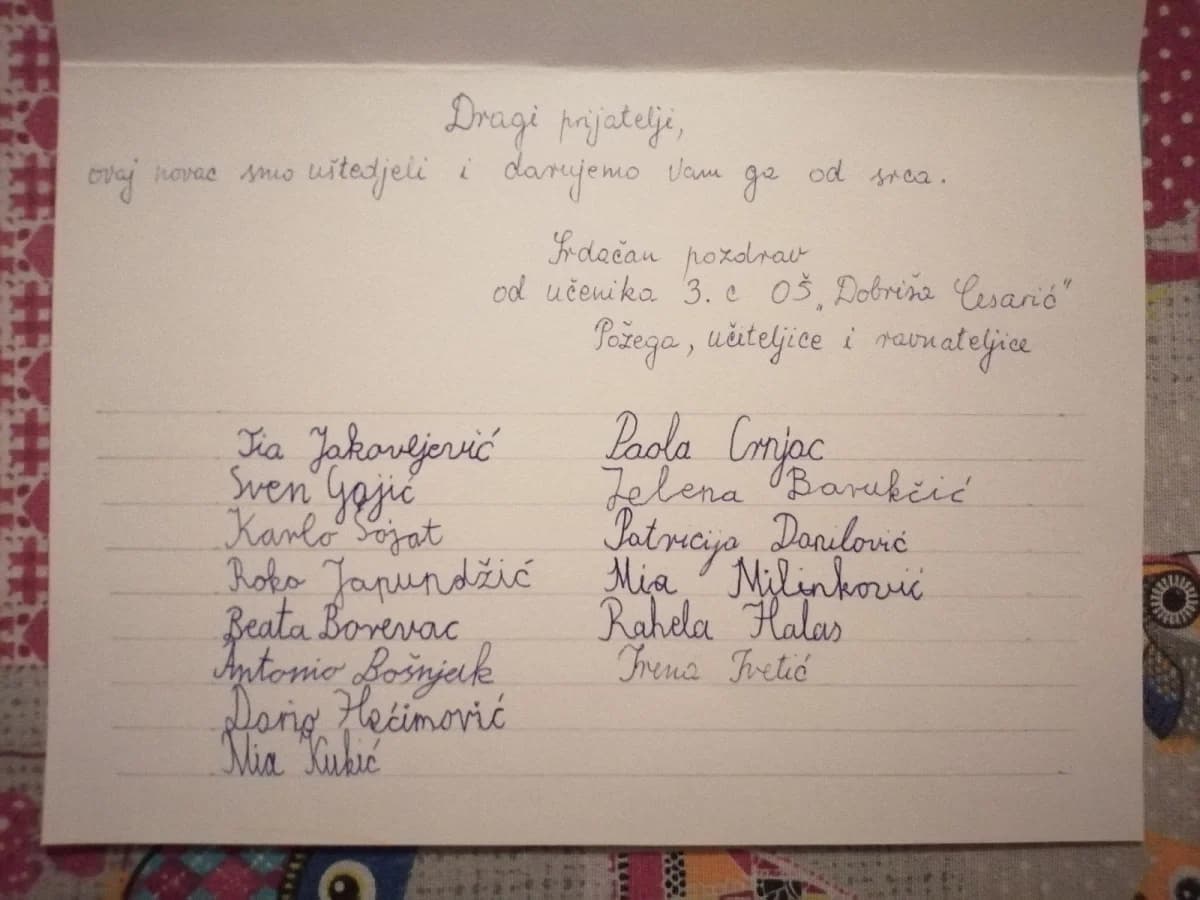 Dragi prijatelji,
ovaj novac smo uštedjeli i darujemo Vam ga od srca.
Srdačan pozdrav
od učenika 3. c OŠ „Dobriša Cesarić"
Požega, učiteljice i ravnateljice
Tia Jakovljević
Sven Gajić
Karlo Šojat
Roko Japundžić
Beata Borevac
Antonio Bošnjak
Dario Hećimović
Mia Kukić
Paola Crnjac
Jelena Barukčić
Patricija Danilović
Mia Milinković
Rahela Halas
Irena Ivetić